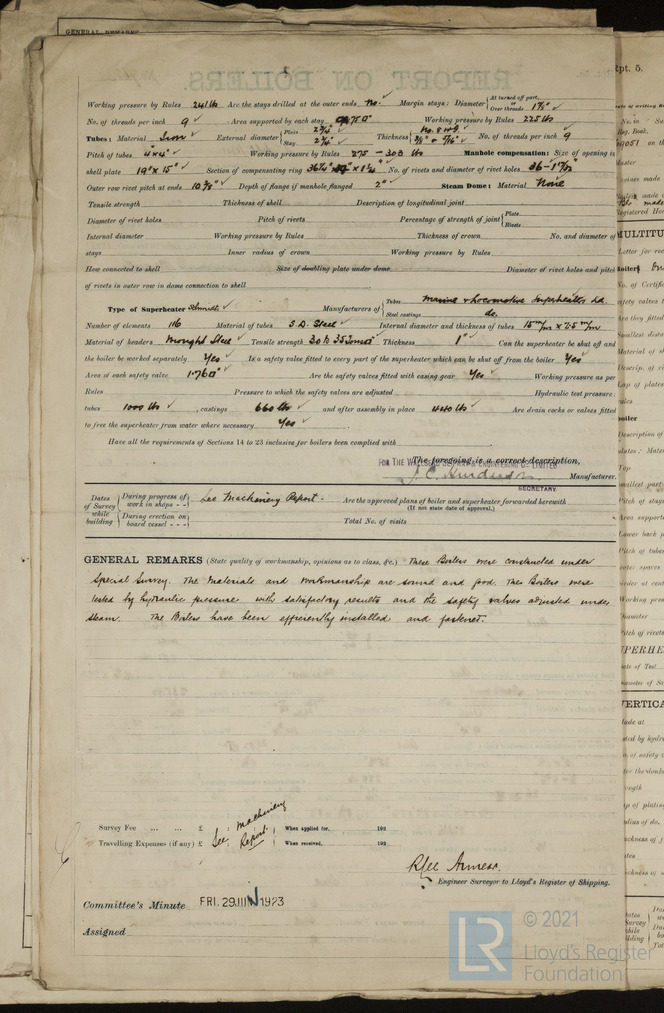 GENERAL REMARK
REPORT ON BOILERS.
Working pressure by Rules 241 lbs Are the stays drilled at the outer ends No. Margin stays: Diameter { At turned off part, or Over threads 1 7/8" 
No. of threads per inch 9 Area supported by each stay Working pressure by Rules 225 lbs
Tubes: Material Iron External diameter { Plain 2 3/4" Stay 2 3/4" Thickness { No. 8 WG. 3/8" & 5/16" No. of threads per inch 9
Pitch of tubes 4" x 4" Working pressure by Rules 275 - 303 lbs Manhole compensation: Size of opening in
shell plate 19" x 15" Section of compensating ring No. of rivets and diameter of rivet holes 36 -
Outer row rivet pitch at ends 10 3/8" Depth of flange if manhole flanged 2" Steam Dome: Material None
Tensile strength Thickness of shell Description of longitudinal joint
Diameter of rivet holes Pitch of rivets Percentage of strength of joint { Plate Rivets
Internal diameter Working pressure by Rules Thickness of crown No. and diameter of
stays Inner radius of crown Working pressure by Rules
How connected to shell Size of doubling plate under dome Diameter of rivet holes and pitch
of rivets in outer row in dome connection to shell
Type of Superheater Schmidt Manufacturers of { Tubes Marine & Locomotive Superheaters Ld. Steel castings do.
Number of elements 116 Material of tubes S.D. Steel Internal diameter and thickness of tubes 15 m/m x 2.5 m/m
Material of headers Wrought Steel Tensile strength 30 to 35 Tons Thickness 1" Can the superheater be shut off and
the boiler be worked separately Yes Is a safety valve fitted to every part of the superheater which can be shut off from the boiler Yes
Area of each safety valve 1.76 □" Are the safety valves fitted with easing gear Yes Working pressure as per
Rules Pressure to which the safety valves are adjusted Hydraulic test pressure:
tubes 1000 lbs, castings 660 lbs and after assembly in place 440 lbs Are drain cocks or valves fitted
to free the superheater from water where necessary Yes
Have all the requirements of Sections 14 to 23 inclusive for boilers been complied with
The foregoing is a correct description,
FOR THE WALLSEND SLIPWAY & ENGINEERING Co. LIMITED
Manufacturer.
SECRETARY.
Dates of Survey while building { During progress of work in shops - - See Machinery Report. Are the approved plans of boiler and superheater forwarded herewith
(If not state date of approval.)
During erection on board vessel - - - Total No. of visits
GENERAL REMARKS (State quality of workmanship, opinions as to class, &c.) These Boilers were constructed under
Special Survey. The Materials and workmanship are sound and good. The Boilers were
tested by hydraulic pressure with satisfactory results and the safety valves adjusted under
steam. The Boilers have been efficiently installed and fastened.
Survey Fee ... ... £ : : When applied for, 192
Travelling Expenses (if any) £ : : When received, 192
See Machinery Report
Engineer Surveyor to Lloyd's Register of Shipping.
Committee's Minute FRI. 29 JUN 1923
Assigned
Rpt. 5.
© 2021
LR Lloyd's Register
Foundation